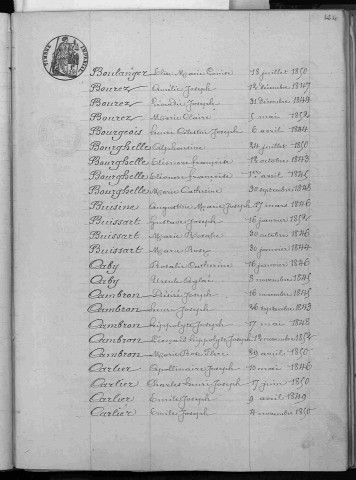 Boulanger Marie Louise 18 juillet 1850
Bourez Amélie Joseph 12 décembre 1847
Bourez Joseph 31 décembre 1844
Bourez Marie Claire 5 mai 1852
Bourgeois Henri Joseph 6 avril 1844
Bourghelle Alphonsine 24 juillet 1850
Bourghelle Eléonore françoise 12 octobre 1843
Bourghelle Eléonore françoise 1er avril 1845
Bourghelle Marie Catherine 30 septembre 1848
Buisine Augustine Marie Joseph 17 mars 1846
Buissart Gustave Joseph 16 janvier 1852
Buissart Marie 30 octobre 1846
Buissart Marie Rose 30 janvier 1844
Caby Catherine 16 janvier 1846
Caby Aglaé 8 novembre 1845
Cambron Joseph 16 novembre 1845
Cambron Joseph 26 septembre 1843
Cambron hippolyte Joseph 17 mai 1848
Cambron hippolyte Joseph 12 novembre 1852
Cambron Marie Rose 29 avril 1850
Carlier Apollinaire Joseph 10 mai 1846
Carlier Charles Louis Joseph 17 juin 1850
Carlier Emile Joseph 9 avril 1849
Carlier Emile Joseph 4 novembre 1850